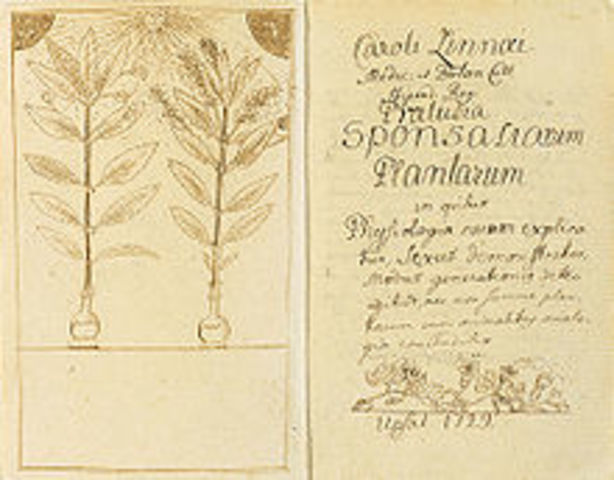 Caroli Linnæi
Medic. et Botan Cult
Præludia
Sponsaliarum
Plantarum
in quibus
Physiologia earum explica
tur, Sexus demonstratur
modus generationis dete
gitur, nec non summa plan-
tarum cum animalibus analo-
gia concluditur
Upsal 1729